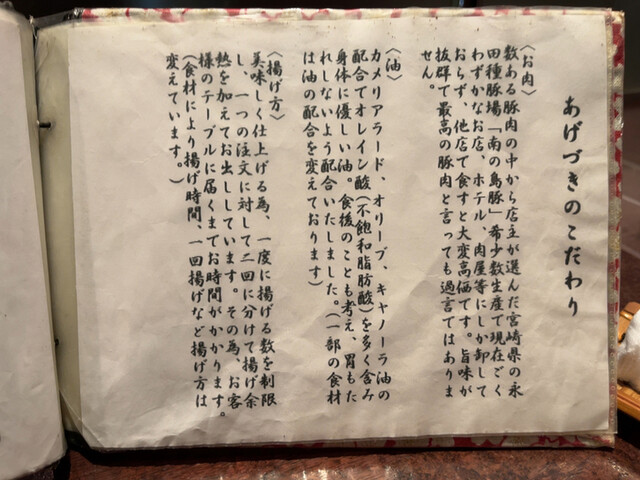 あげづきのこだわり
〈お肉〉
数ある豚肉の中から店主が選んだ宮崎県の永
田種豚場「南の島豚」希少数生産で現在ごく
わずかなお店、ホテル、肉屋等にしか卸して
おらず、他店で食すと大変高価です。旨味が
抜群で最高の豚肉と言っても過言ではありま
せん。
〈油〉
カメリアラード、オリーブ、キャノーラ油の
配合でオレイン酸（不飽和脂肪酸）を多く含み
身体に優しい油。食後のことも考え、胃もた
れしないよう配合いたしました。（一部の食材
は油の配合を変えております）
〈揚げ方〉
美味しく仕上げる為、一度に揚げる数を制限
し、一つの注文に対して二回に分けて揚げ余
熱を加えてお出ししています。その為、お客
様のテーブルに届くまでお時間がかかります。
（食材により揚げ時間、一回揚げなど揚げ方は
変えています。）